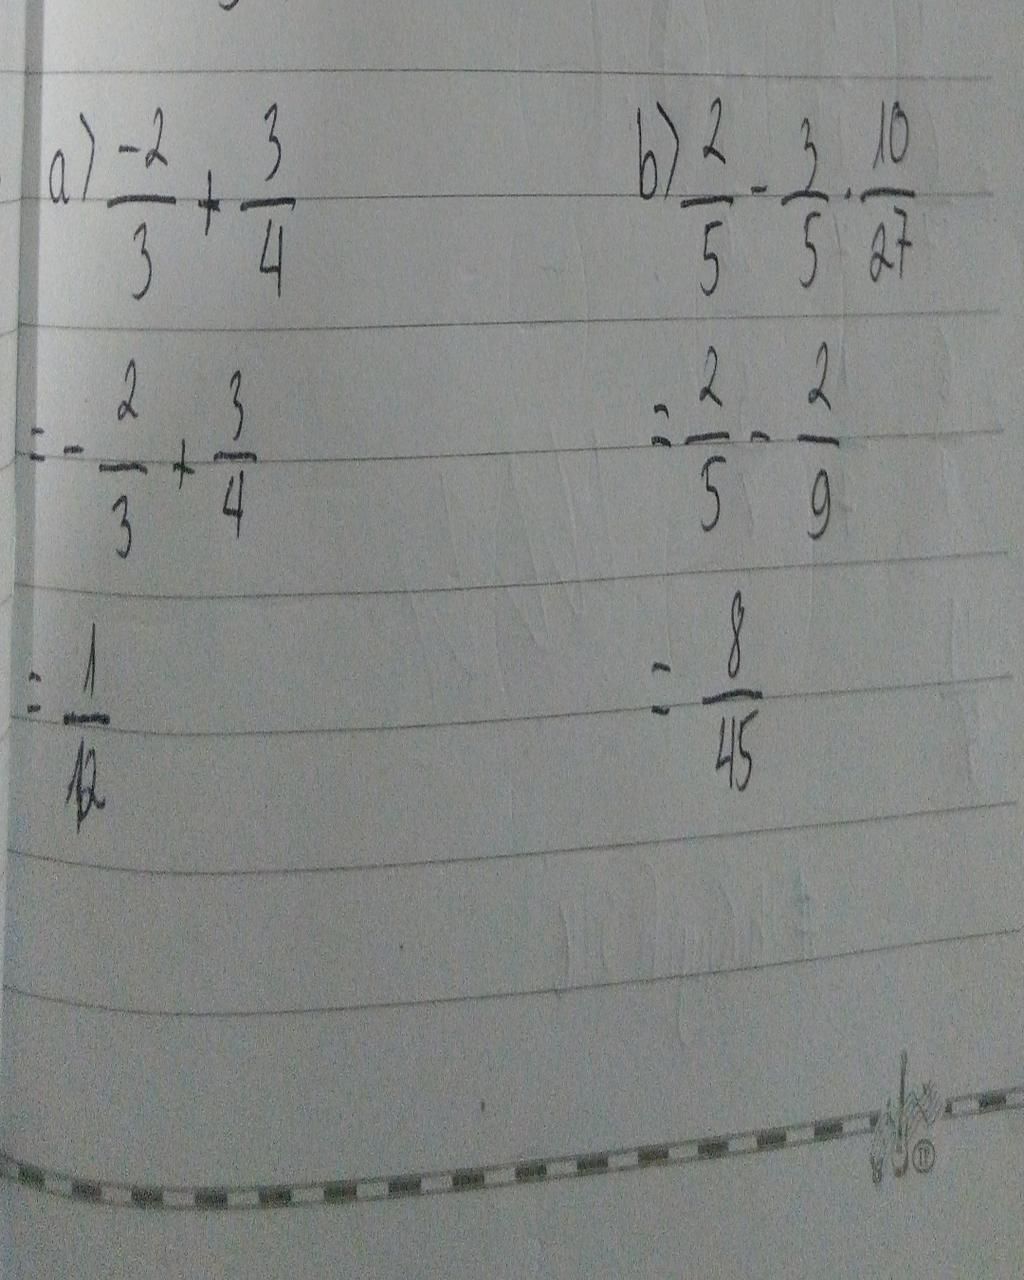 a) -2/3 + 3/4
= - 2/3 + 3/4
= 1/12
b) 2/5 - 3/5 . 10/27
= 2/5 - 2/9
= 8/45